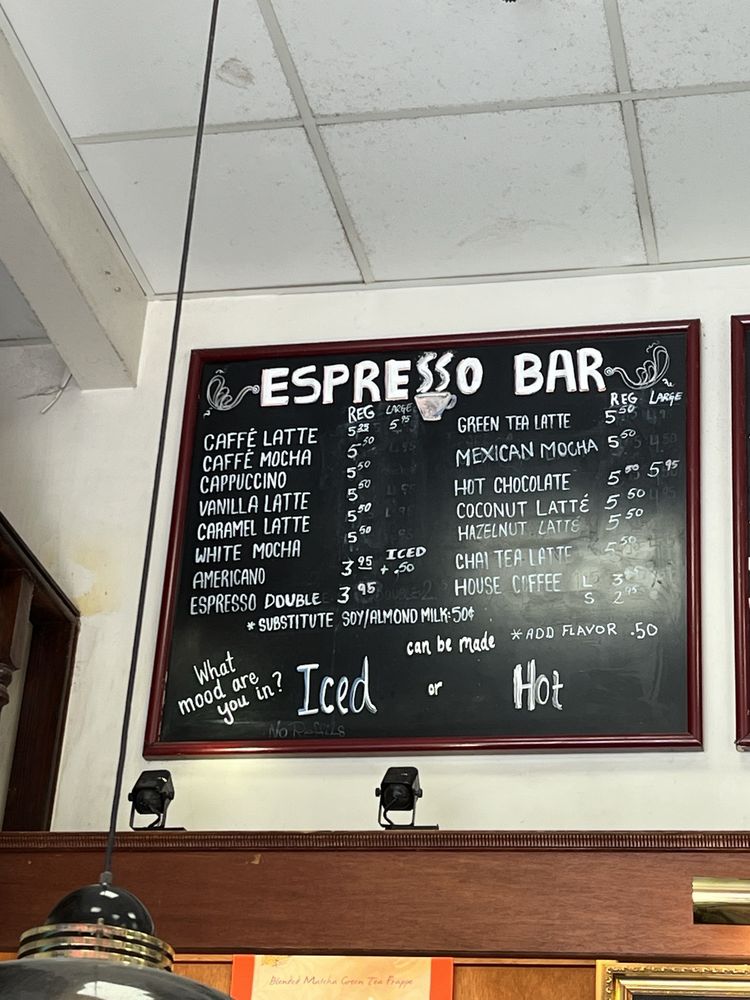 ESPRESSO BAR
REG LARGE
CAFFÉ LATTE 5.25 5.95
CAFFÉ MOCHA 5.50
CAPPUCCINO 5.50
VANILLA LATTE 5.50
CARAMEL LATTE 5.50
WHITE MOCHA 5.50
AMERICANO 3.95 ICED + .50
ESPRESSO DOUBLE 3.95
REG LARGE
GREEN TEA LATTE 5.50
MEXICAN MOCHA 5.50
HOT CHOCOLATE 5.00 5.95
COCONUT LATTÉ 5.50
HAZELNUT LATTÉ 5.50
CHAI TEA LATTE 5.50
HOUSE COFFEE L
S 2.95
*SUBSTITUTE SOY/ALMOND MILK: 50¢
*ADD FLAVOR .50
What
mood are
you in?
can be made
Iced or Hot
No Refills
Blended Matcha Green Tea Frappe